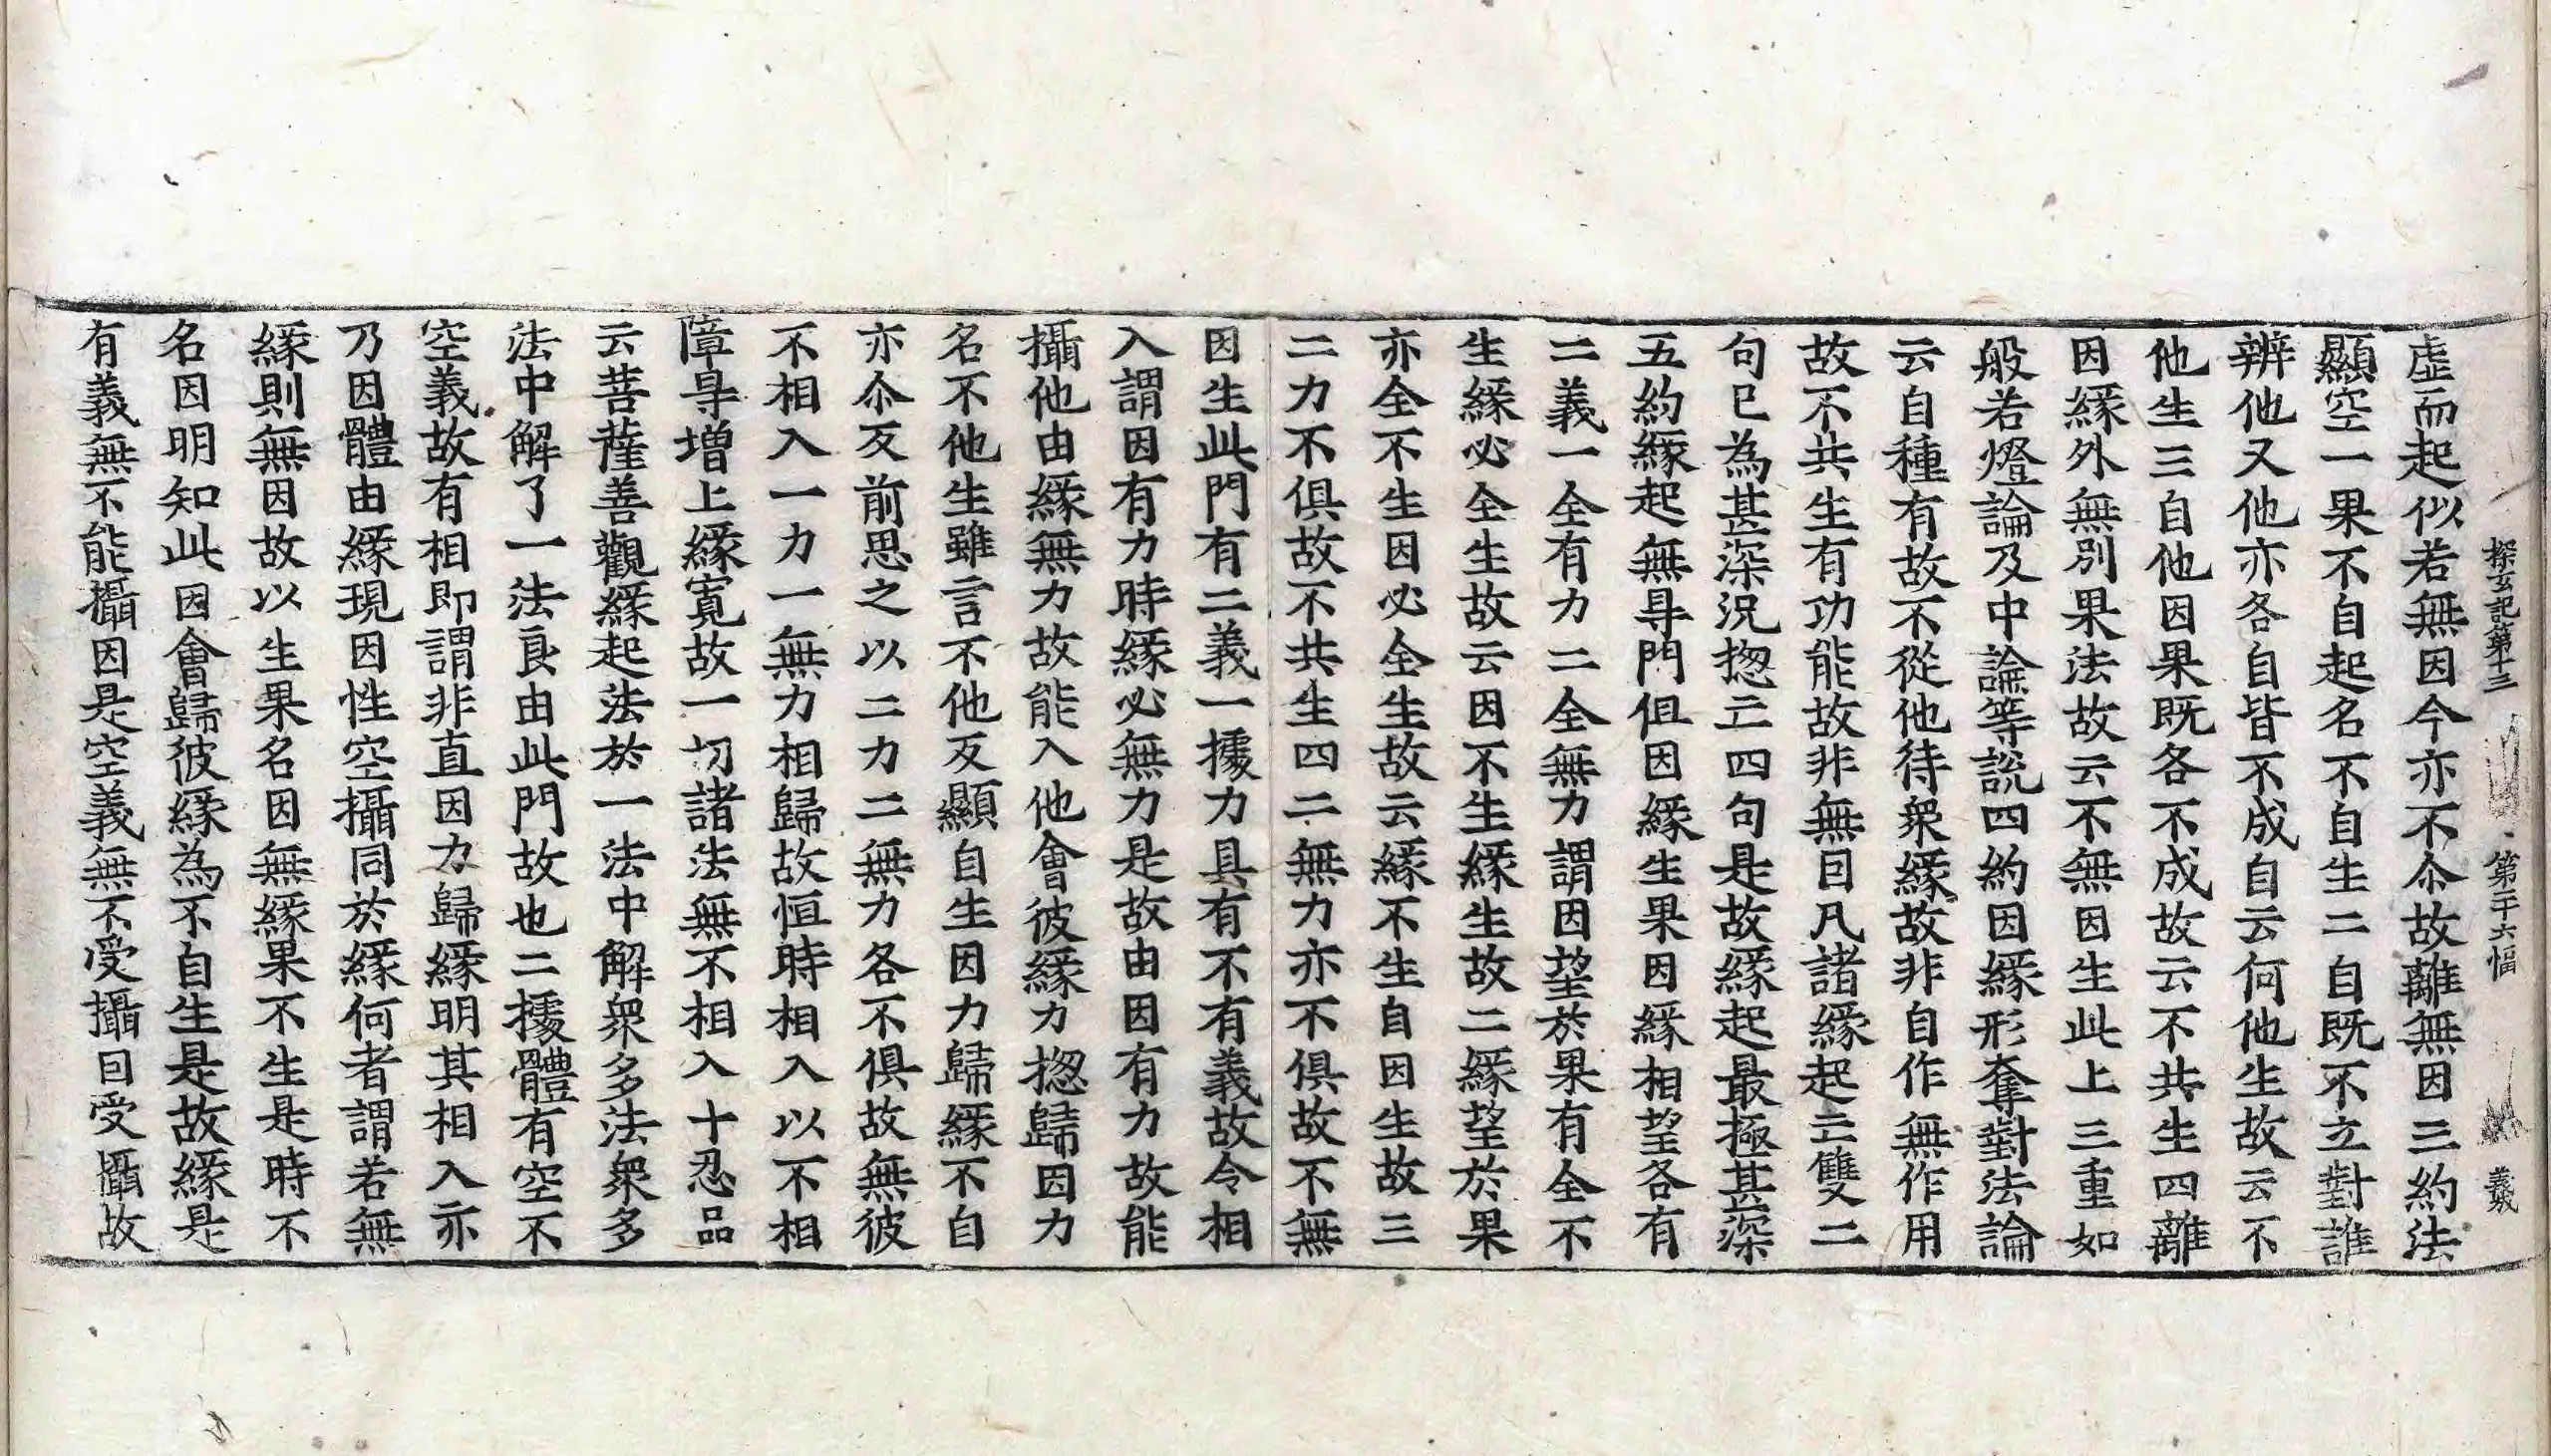 探玄記第十三 第二十六幅 義
虛而起似若無因今亦不尒故離無因三約法
顯空一果不自起名不自生二自既不立對誰
辨他又他亦各自皆不成自云何他生故云不
他生三自他因果既各不成故云不共生四離
因緣外無別果法故云不無因生此上三重如
般若燈論及中論等說四約因緣形奪對法論
云自種有故不從他待衆緣故非自作無作用
故不共生有功能故非無因凡諸緣起亖雙二
句已為甚深況揔亖四句是故緣起最極甚深
五約緣起無㝵門但因緣生果因緣相望各有
二義一全有力二全無力謂因望於果有全不
生緣必全生故云因不生緣生故二緣望於果
亦全不生因必全生故云緣不生自因生故三
二力不俱故不共生四二無力亦不俱故不無
因生此門有二義一據力具有不有義故令相
入謂因有力時緣必無力是故由因有力故能
攝他由緣無力故能入他會彼緣力揔歸因力
名不他生雖言不他反顯自生因力歸緣不自
亦尒反前思之以二力二無力各不俱故無彼
不相入一力一無力相歸故恒時相入以不相
障㝵增上緣寬故一切諸法無不相入十忍品
云菩薩善觀緣起法於一法中解衆多法衆多
法中解了一法良由此門故也二據體有空不
空義故有相即謂非直因力歸緣明其相入亦
乃因體由緣現因性空攝同於緣何者謂若無
緣則無因故以生果名因無緣果不生是時不
名因明知此因會歸彼緣為不自生是故緣是
有義無不能攝因是空義無不受攝因受攝故